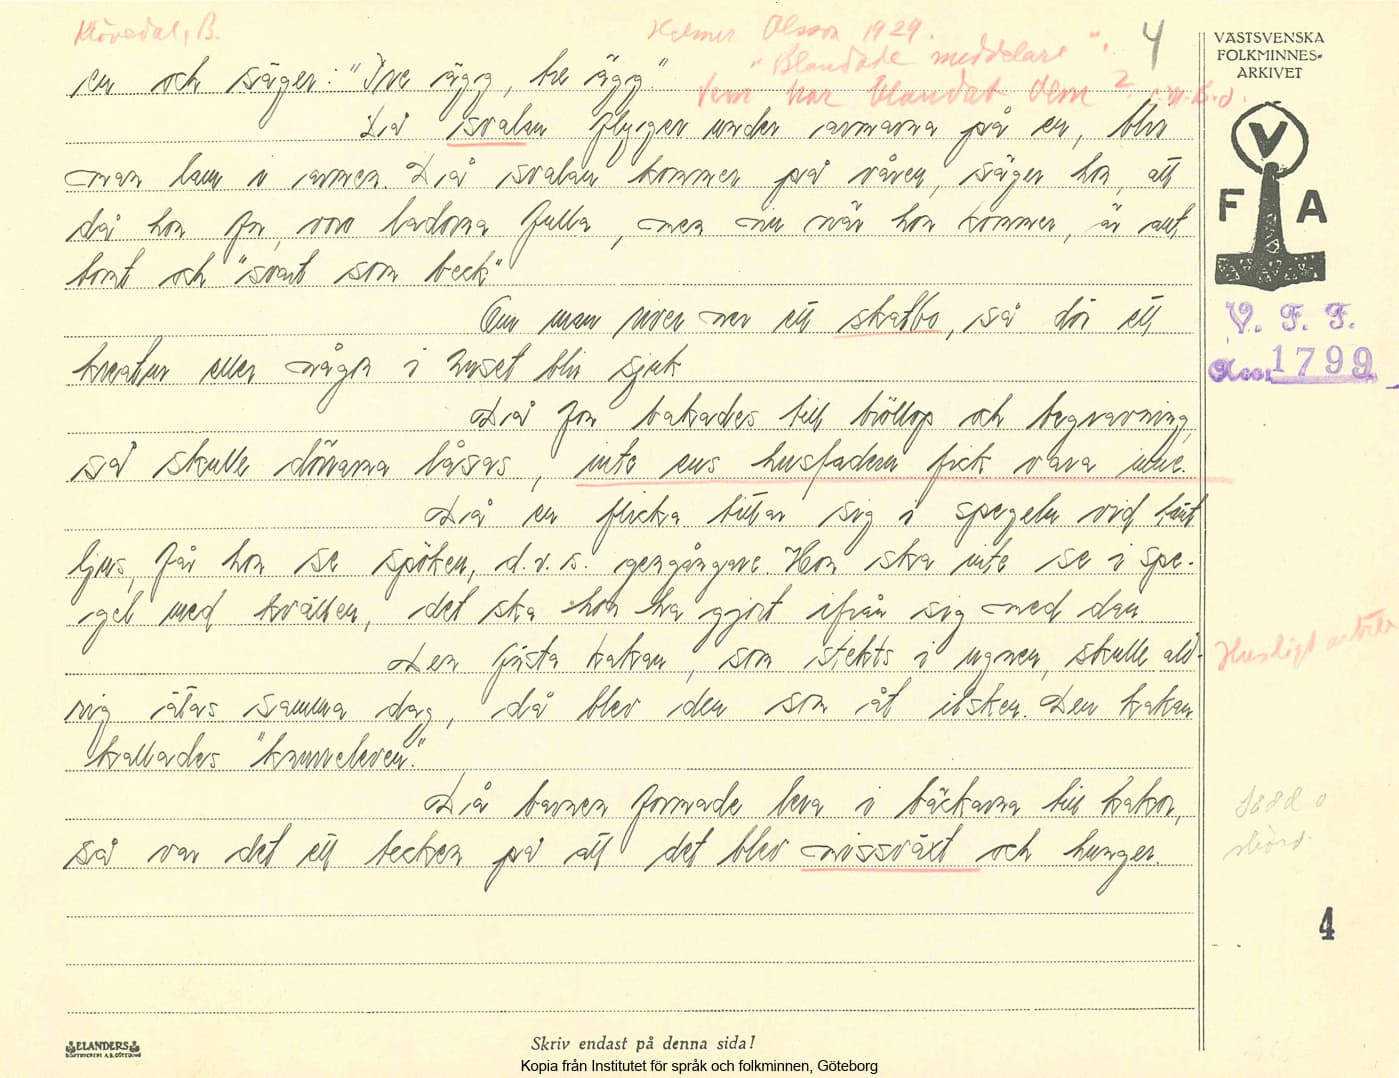 Klövedal, B.
Helmer Olsson 1929.
"Blandade meddelare".
Vem har blandat dem?
4
VÄSTSVENSKA
FOLKMINNES-
ARKIVET
V
F A
V. F. F.
Acc. 1799
en och säger: "Tve ägg, tre ägg"
Då svalan flyger under armarna på en, blir
man lam i armen. Då svalan kommer på våren, säger hon, att
då hon for, voro ladorna fulla, men nu när hon kommer, är allt
tomt och "svart som beck"
Om man river ner ett skatbo, så dör ett
kreatur eller någon i huset blir sjuk
Då hon bakades till bröllop och begravning,
så skulle dörrarna låsas, inte ens husfadern fick vara inne.
Då en flicka tittar sig i spegeln vid tänt
ljus, får hon se spöken, d.v.s. gengångare. Hon ska inte se i spe-
gel med kvällen, det ska hon ha gjort ifrån sig med dan
Den första kakan, som stekts i ugnen, skulle ald-
rig ätas samma dag, då blev den som åt ilsken. Den kakan
kallades
Då barnen formade lera i bäckarna till kakor,
så var det ett tecken på att det blev missväxt och hunger.
Husligt arbete
4
ELANDERS
Skriv endast på denna sida!
Kopia från Institutet för språk och folkminnen, Göteborg